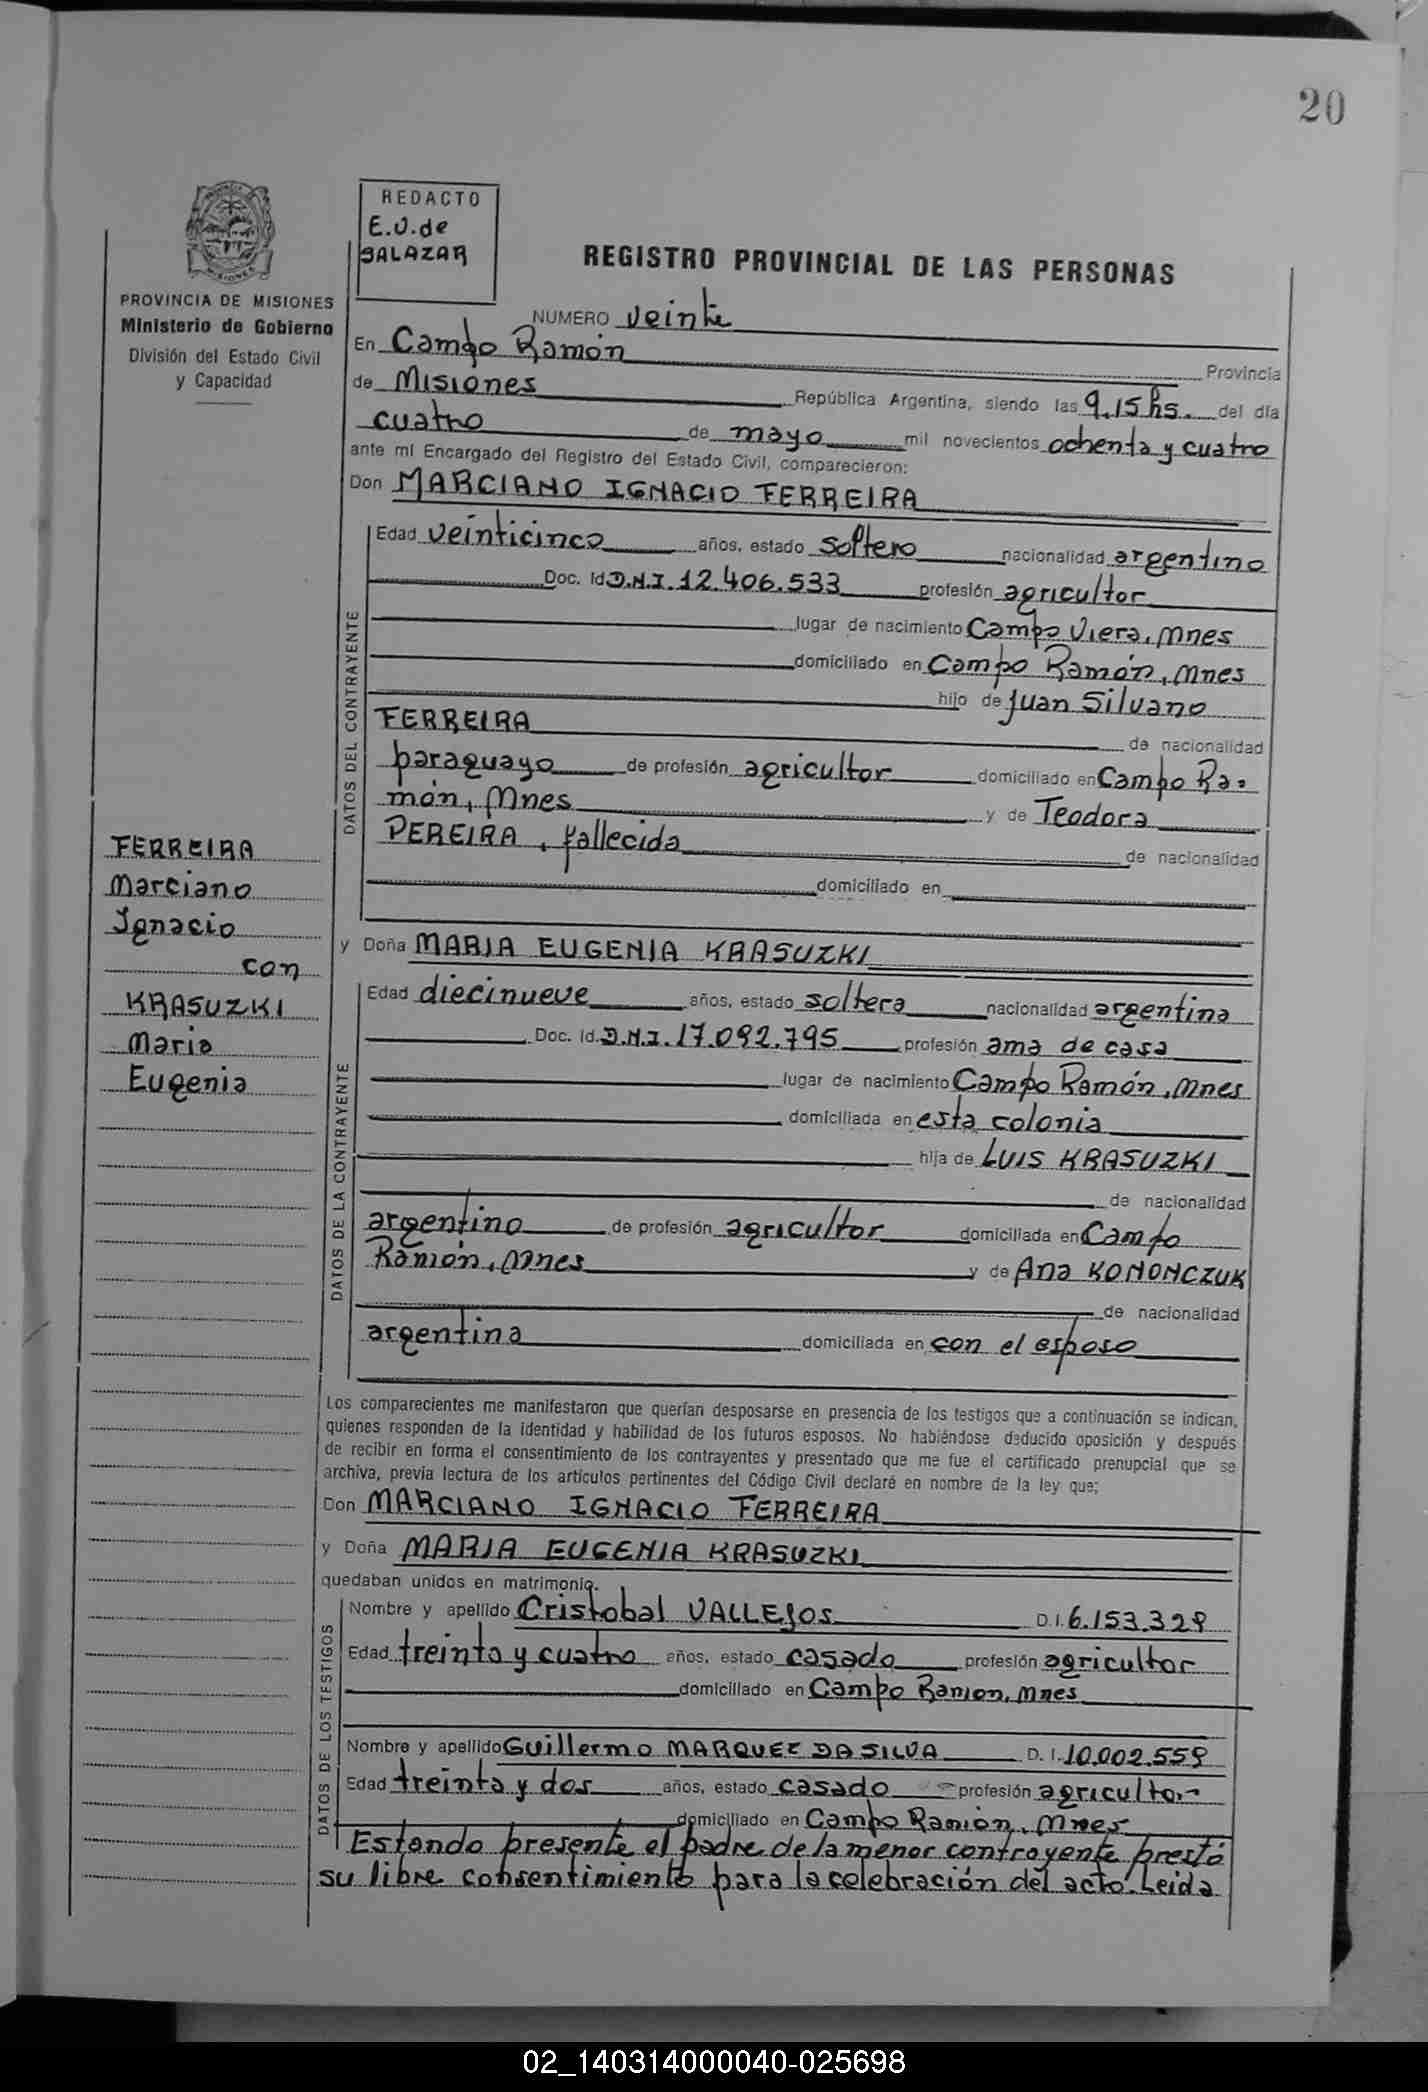 20
REDACTO
E.U.de
SALAZAR
PROVINCIA DE MISIONES
Ministerio de Gobierno
División del Estado Civil
y Capacidad
REGISTRO PROVINCIAL DE LAS PERSONAS
NUMERO veinte
En Campo Ramón Provincia
de Misiones República Argentina, siendo las 9.15 hs. del día
cuatro de mayo mil novecientos ochenta y cuatro
ante mi Encargado del Registro del Estado Civil, comparecieron:
Don MARCIANO IGNACIO FERREIRA
DATOS DEL CONTRAYENTE
Edad veinticinco años, estado soltero nacionalidad argentino
Doc. Id D.N.I. 12.406.533 profesión agricultor
lugar de nacimiento Campo Viera, Mnes
domiciliado en Campo Ramón, Mnes
hijo de Juan Silvano
FERREIRA de nacionalidad
paraguayo de profesión agricultor domiciliado en Campo Ra-
món, Mnes y de Teodora
PEREIRA, fallecida de nacionalidad
domiciliado en
FERREIRA
Marciano
Ignacio
con
KRASUZKI
Maria
Eugenia
y Doña MARIA EUGENIA KRASUZKI
DATOS DE LA CONTRAYENTE
Edad diecinueve años, estado soltera nacionalidad argentina
Doc. Id. D.N.I. 17.092.795 profesión ama de casa
lugar de nacimiento Campo Ramón, Mnes
domiciliada en esta colonia
hija de LUIS KRASUZKI
de nacionalidad
argentino de profesión agricultor domiciliada en Campo
Ramón, Mnes y de Ana KONONCZUK
de nacionalidad
argentina domiciliada en con el esposo
Los comparecientes me manifestaron que querían desposarse en presencia de los testigos que a continuación se indican,
quienes responden de la identidad y habilidad de los futuros esposos. No habiéndose deducido oposición y después
de recibir en forma el consentimiento de los contrayentes y presentado que me fue el certificado prenupcial que se
archiva, previa lectura de los artículos pertinentes del Código Civil declaré en nombre de la ley que;
Don MARCIANO IGNACIO FERREIRA
y Doña MARIA EUGENIA KRASUZKI
quedaban unidos en matrimonio.
DATOS DE LOS TESTIGOS
Nombre y apellido Cristobal VALLEJOS D.I. 6.153.329
Edad treinta y cuatro años, estado casado profesión agricultor
domiciliado en Campo Ramon, Mnes
Nombre y apellido Guillermo MARQUEZ DA SILVA D.I. 10.002.559
Edad treinta y dos años, estado casado profesión agricultor
domiciliado en Campo Ramón, Mnes
Estando presente el padre de la menor contrayente prestó
su libre consentimiento para la celebración del acto. Leida
02_140314000040-025698